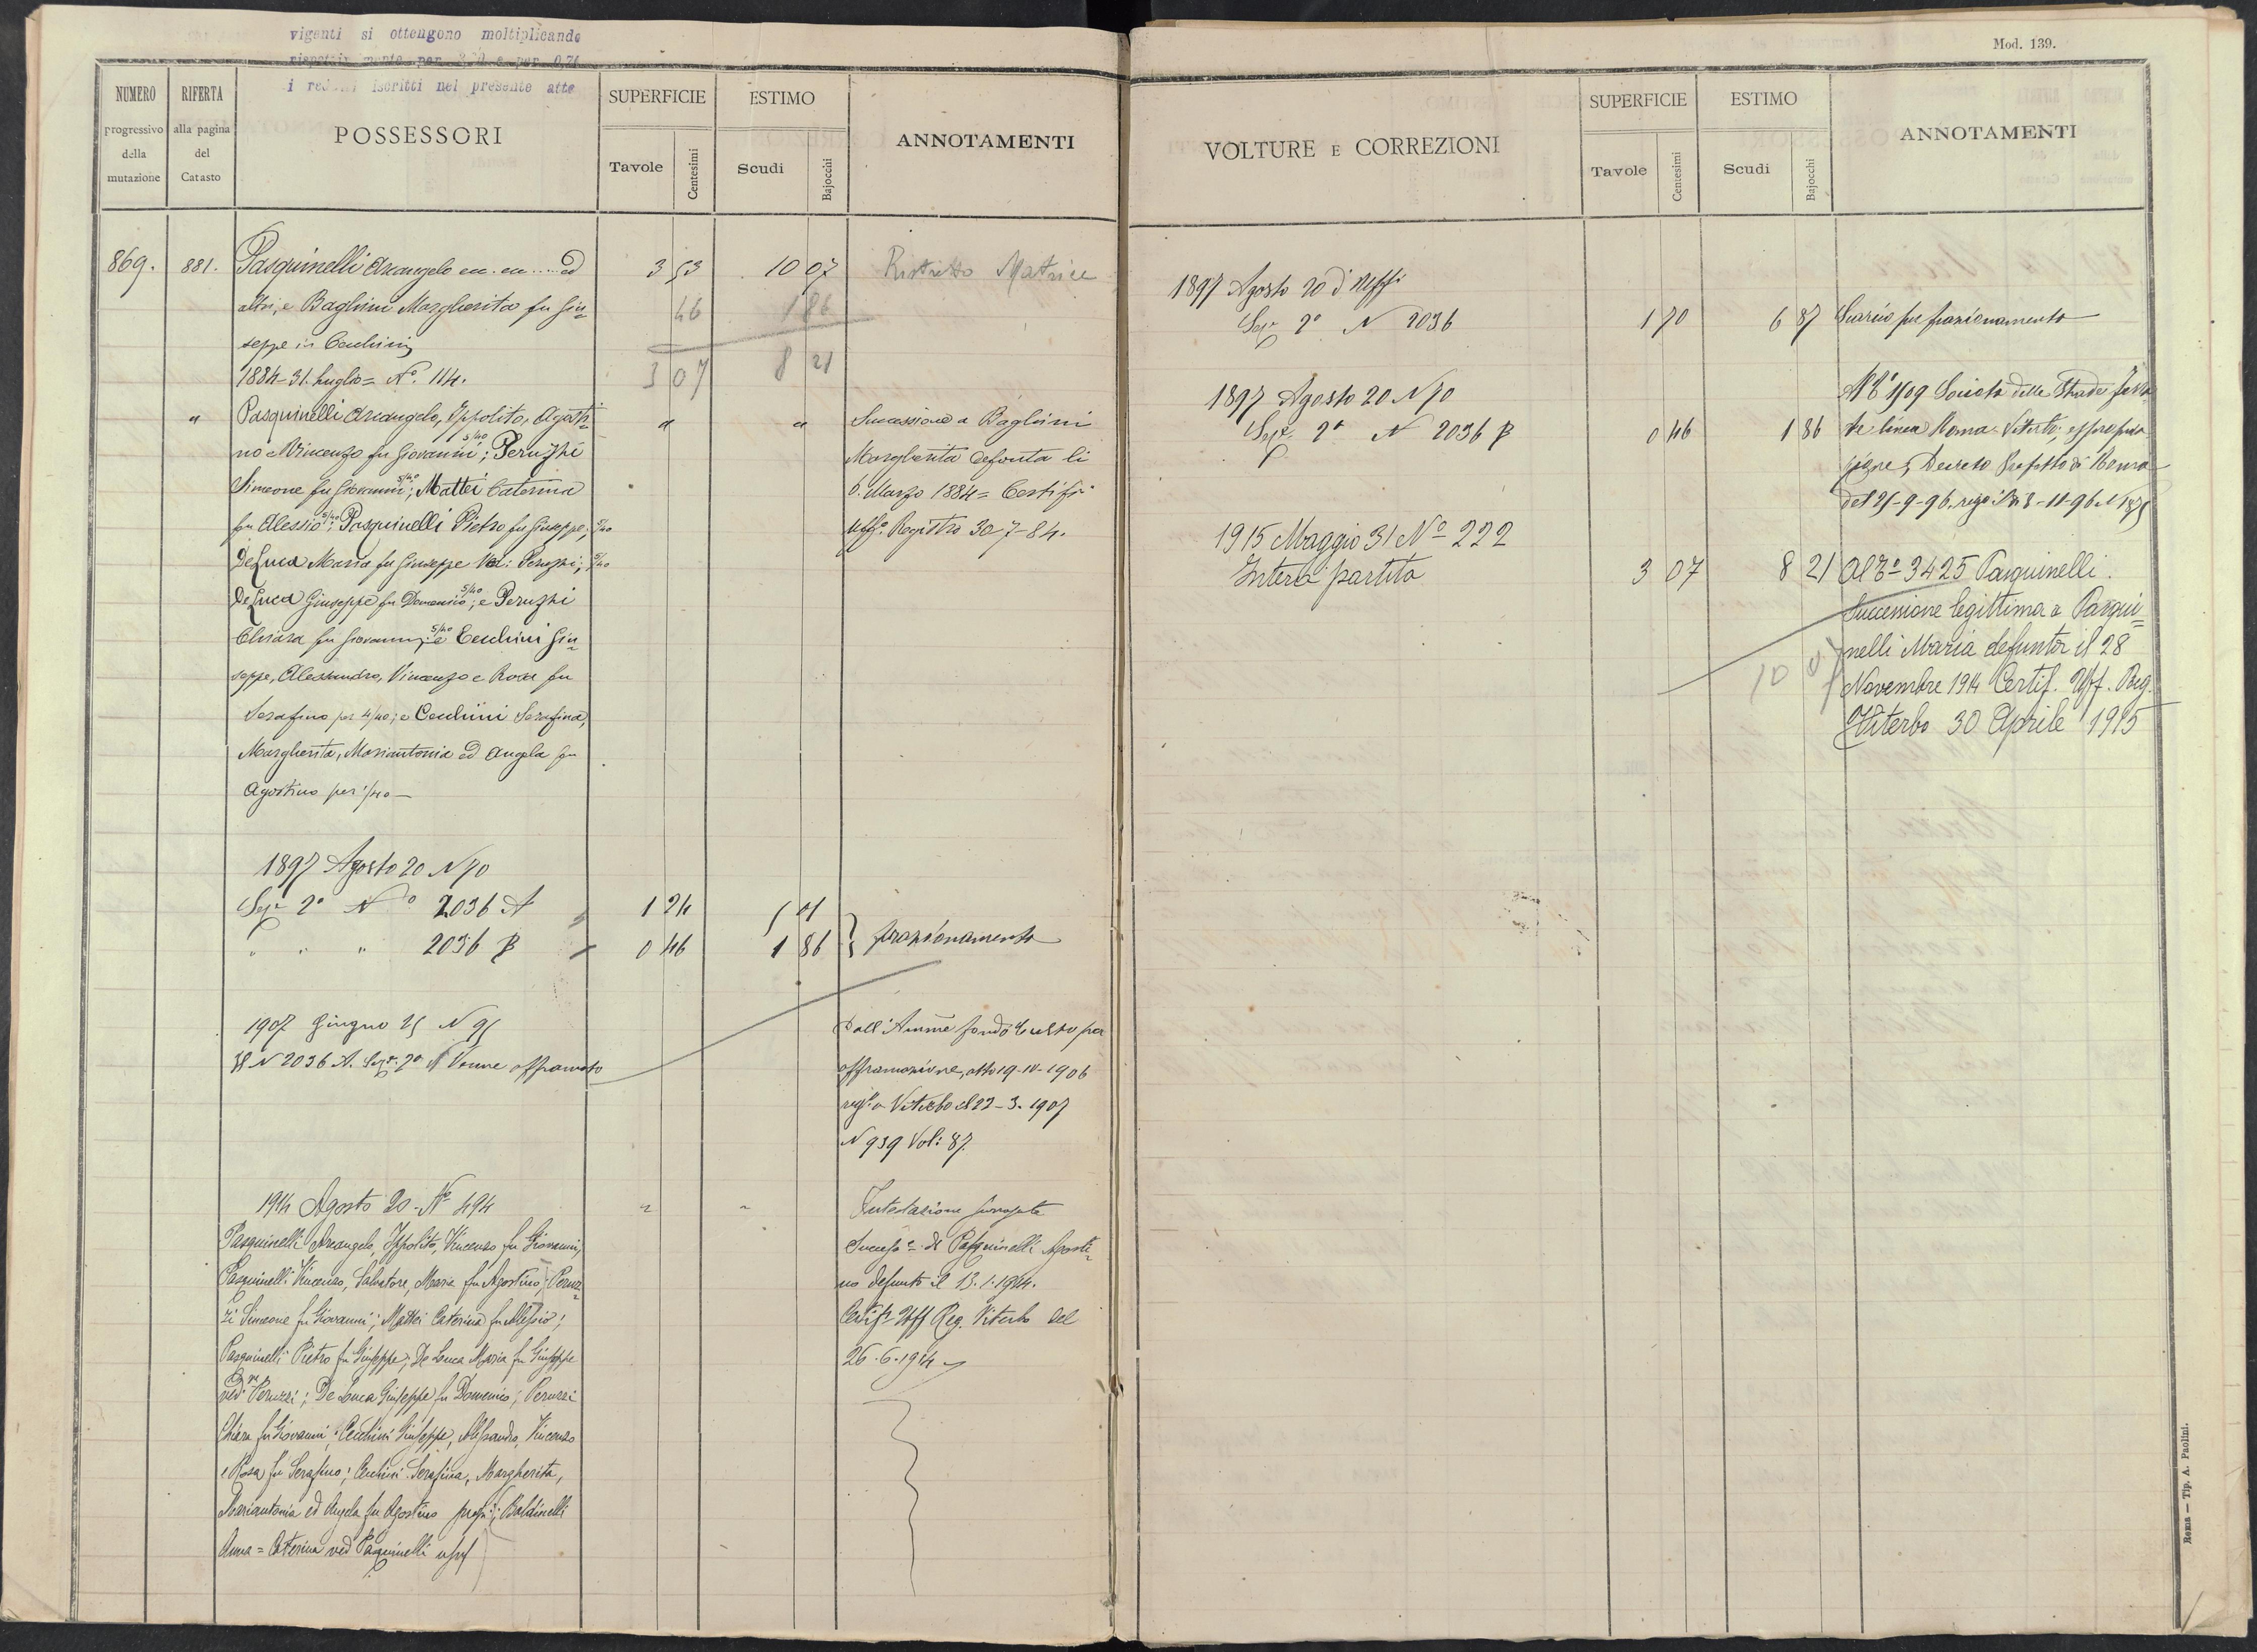 vigenti si ottengono moltiplicando
i iscritti nel presente atto
NUMERO
progressivo
della
mutazione
RIFERTA
alla pagina
del
Catasto
POSSESSORI
SUPERFICIE
Tavole
Centesimi
ESTIMO
Scudi
Bajocchi
ANNOTAMENTI
869. 881. Pasquinelli Arcangelo ed 3 53 10 07 Ristretto Matrice
altri, e Baghini Margherita fu Giu= 46 1 86
seppe in Cecchini
1884-31. Luglio = No. 114. 3 07 8 21
" Pasquinelli Arcangelo, Ippolito, Agosti= " " Successione a Baghini
no e Vincenzo fu Giovanni 5/40; Peruzhi Margherita defonta li
Simeone fu Giovanni 5/40; Mattei Caterina 6. Marzo 1884 = Certifi:
fu Alessio 5/40; Pasquinelli Pietro fu Giuseppe; 5/40 Uffo. Registro 30-7-84.
De Luca Maria fu Giuseppe Ved: Peruzhi; 5/40
De Luca Giuseppe fu Domenico 5/40; e Peruzhi
Chiara fu Giovanni 5/40; e Cecchini Giu=
seppe, Alessandro, Vincenzo e Rosa fu
Serafino per 4/40; e Cecchini Serafina,
Margherita, Mariantonia ed Angela fu
Agostino per 1/40
1897 Agosto 20 N 70
Sez 2a No 2036 A 1 24 5 01
" " " 2036 B 0 46 1 86 } frazionamento
1907 Giugno 25 N 95 Dall' Amme fondo Culto per
Il N 2036 A. Sez. 2a Venne affrancato affrancazione, atto 19-10-1906
rego a Viterbo il 22-3-1907
N 939 Vol: 87.
1914 Agosto 20 - No 494 " " Intestazione surrogata
Pasquinelli Arcangelo, Ippolito, Vincenzo fu Giovanni, Success.e di Pasquinelli Agosti=
Pasquinelli Vincenzo, Salvatore, Maria fu Agostino; Peruz= no defunto il 13.1.1914.
zi Simeone fu Giovanni; Mattei Caterina fu Alessio; Certif. Uff Reg. Viterbo del
Pasquinelli Pietro fu Giuseppe; De Luca Maria fu Giuseppe 26.6.1914
ved. Peruzzi; De Luca Giuseppe fu Domenico; Peruzzi
Chiara fu Giovanni; Cecchini Giuseppe, Alessandro, Vincenzo
e Rosa fu Serafino; Cecchini Serafina, Margherita,
Mariantonia ed Angela fu Agostino propri; Baldinelli
Anna = Caterina ved Pasquinelli usuf
Mod. 139.
VOLTURE E CORREZIONI
SUPERFICIE
Tavole
Centesimi
ESTIMO
Scudi
Bajocchi
ANNOTAMENTI
1897 Agosto 20 d'
Sez 2a N 2036 1 70 6 87 Scarico per frazionamento
1897 Agosto 20 N 70 Al To 1709 Società delle Strade ferra
Sez 2a N 2036 B 0 46 1 86 te linea Roma-Viterbo; espropria
zione; Decreto Prefetto di Roma
del 21-9-96.
1915 Maggio 31 No 222
Intera partita 3 07 8 21 Al To 3425 Pasquinelli.
Successione legittima a Pasqui=
10 07 nelli Maria defunta il 28
Novembre 1914 Certif. Uff. Reg.
Viterbo 30 Aprile 1915
Roma — Tip. A. Paolini.